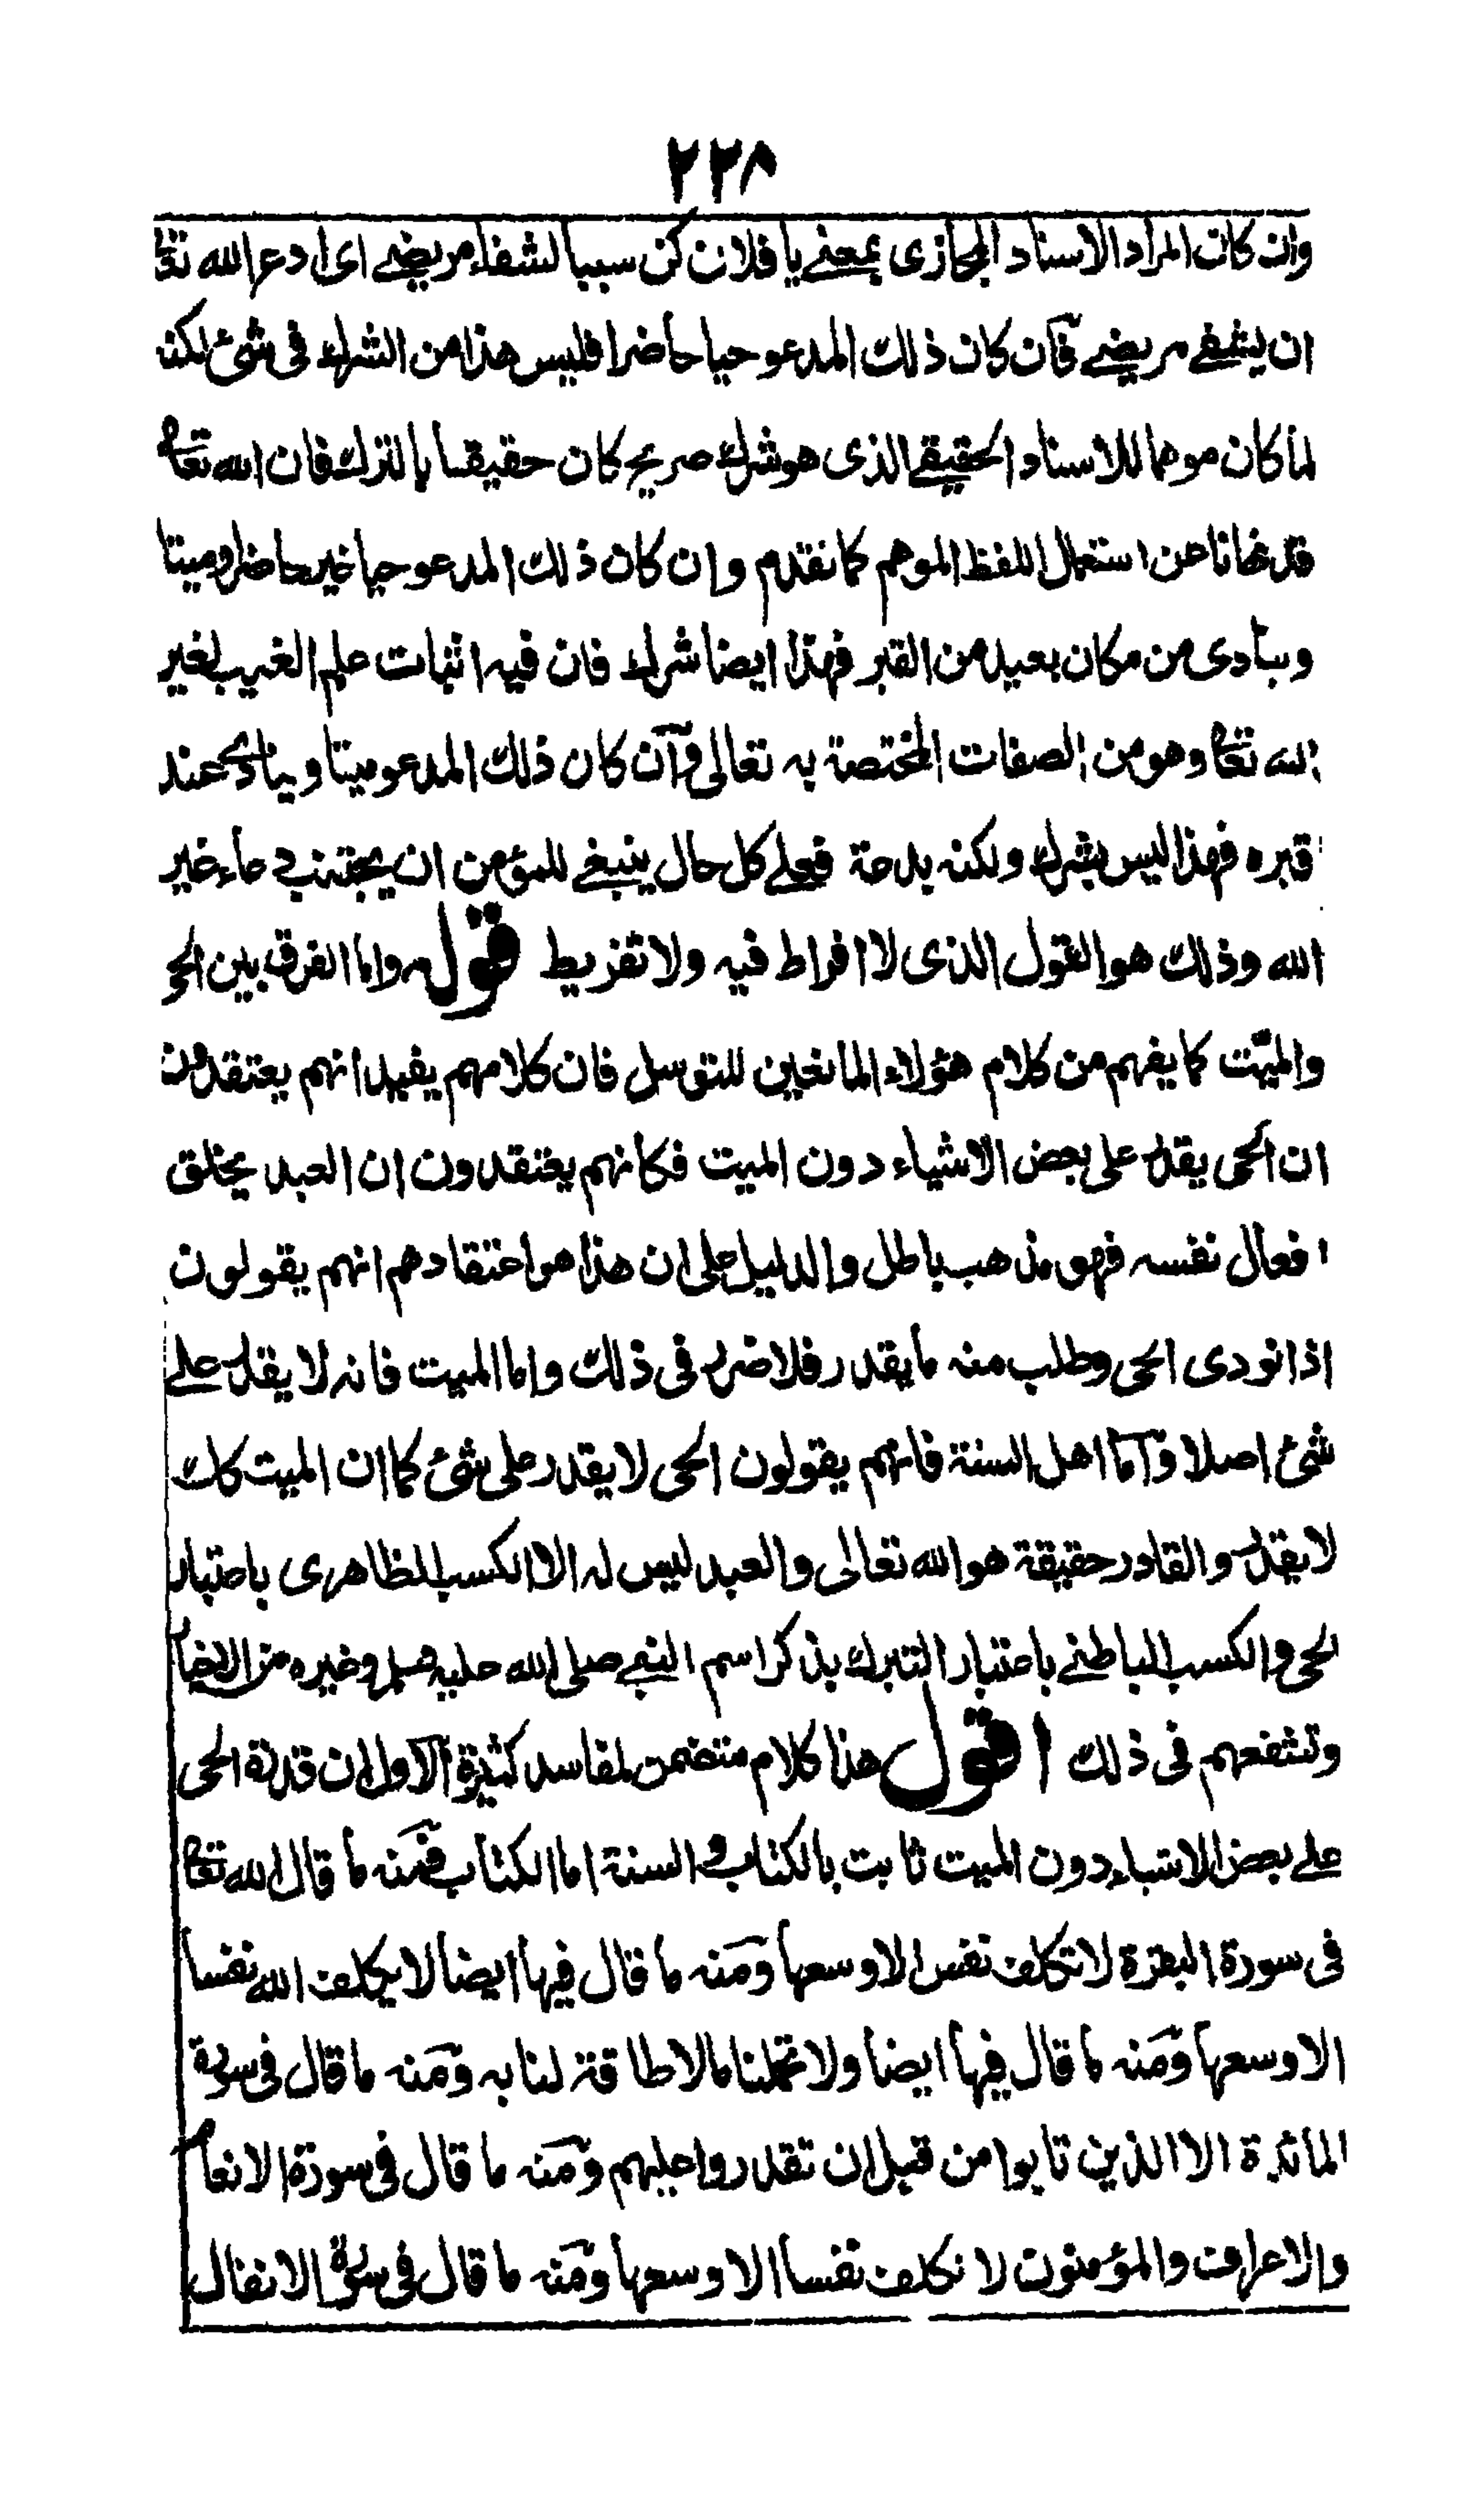 ٢٣٨
وان كان المراد الاسناد المجازى بمعنى يا فلان كن سببا لشفاء مريضى اى ادع الله تعا
ان يشفى مريضى فان كان ذلك المدعو حيا حاضرا فليس هذا من الشرك فى شئ لكنه
لما كان موهما للاسناد الحقيقى الذى هو شرك صريح كان حقيقا بالترك فان الله تعا
قد نهانا عن استعمال اللفظ الموهم كما تقدم وان كان ذلك المدعو حيا غير حاضر او ميتا
وينادى من مكان بعيد من القبر فهذا ايضا شرك فان فيه اثبات علم الغيب لغير
الله تعا وهو من الصفات المختصة به تعالى وان كان ذلك المدعو ميتا وينادى عند
قبره فهذا ليس بشرك ولكنه بدعة فعلى كل حال ينبغى للمؤمن ان يجتنب دعاء غير
الله وذلك هو القول الذى لا افراط فيه ولا تفريط قوله واما الفرق بين الحى
والميت كما يفهم من كلام هؤلاء المانعين للتوسل فان كلامهم يفيد انهم يعتقدون
ان الحى يقدر على بعض الاشياء دون الميت فكانهم يعتقدون ان العبد يخلق
افعال نفسه فهو مذهب باطل والدليل على ان هذا هو اعتقادهم انهم يقولون
اذا نودى الحى وطلب منه ما يقدر فلا ضرر فى ذلك واما الميت فانه لا يقدر على
شئ اصلا واما اهل السنة فانهم يقولون الحى لا يقدر على شئ كما ان الميت كك
لا يقدر والقادر حقيقة هو الله تعالى والعبد ليس له الا الكسب الظاهرى باعتبار
الحى والكسب الباطنى باعتبار التبرك بذكر اسم النبى صلى الله عليه وسلم وغيره من الاخيا
وتشفعهم فى ذلك اقول هذا كلام متضمن لمفاسد كثيرة الاول ان قدرة الحى
على بعض الاشياء دون الميت ثابت بالكتاب والسنة اما الكتاب فمنه ما قال الله تعا
فى سورة البقرة لا تكلف نفس الا وسعها ومنه ما قال فيها ايضا لا يكلف الله نفسا
الا وسعها ومنه ما قال فيها ايضا ولا تحملنا ما لا طاقة لنا به ومنه ما قال فى سورة
المائدة الا الذين تابوا من قبل ان تقدروا عليهم ومنه ما قال فى سورة الانعام
والاعراف والمؤمنون لا نكلف نفسا الا وسعها ومنه ما قال فى سورة الانفال